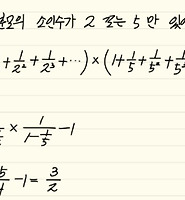 소인수가 2 또는 5 만
+ 1/2² + 1/2³ + ⋯) × (1 + 1/5 + 1/5² + 1/5
× 1/(1 - 1/5) - 1
- 1 = 3/2